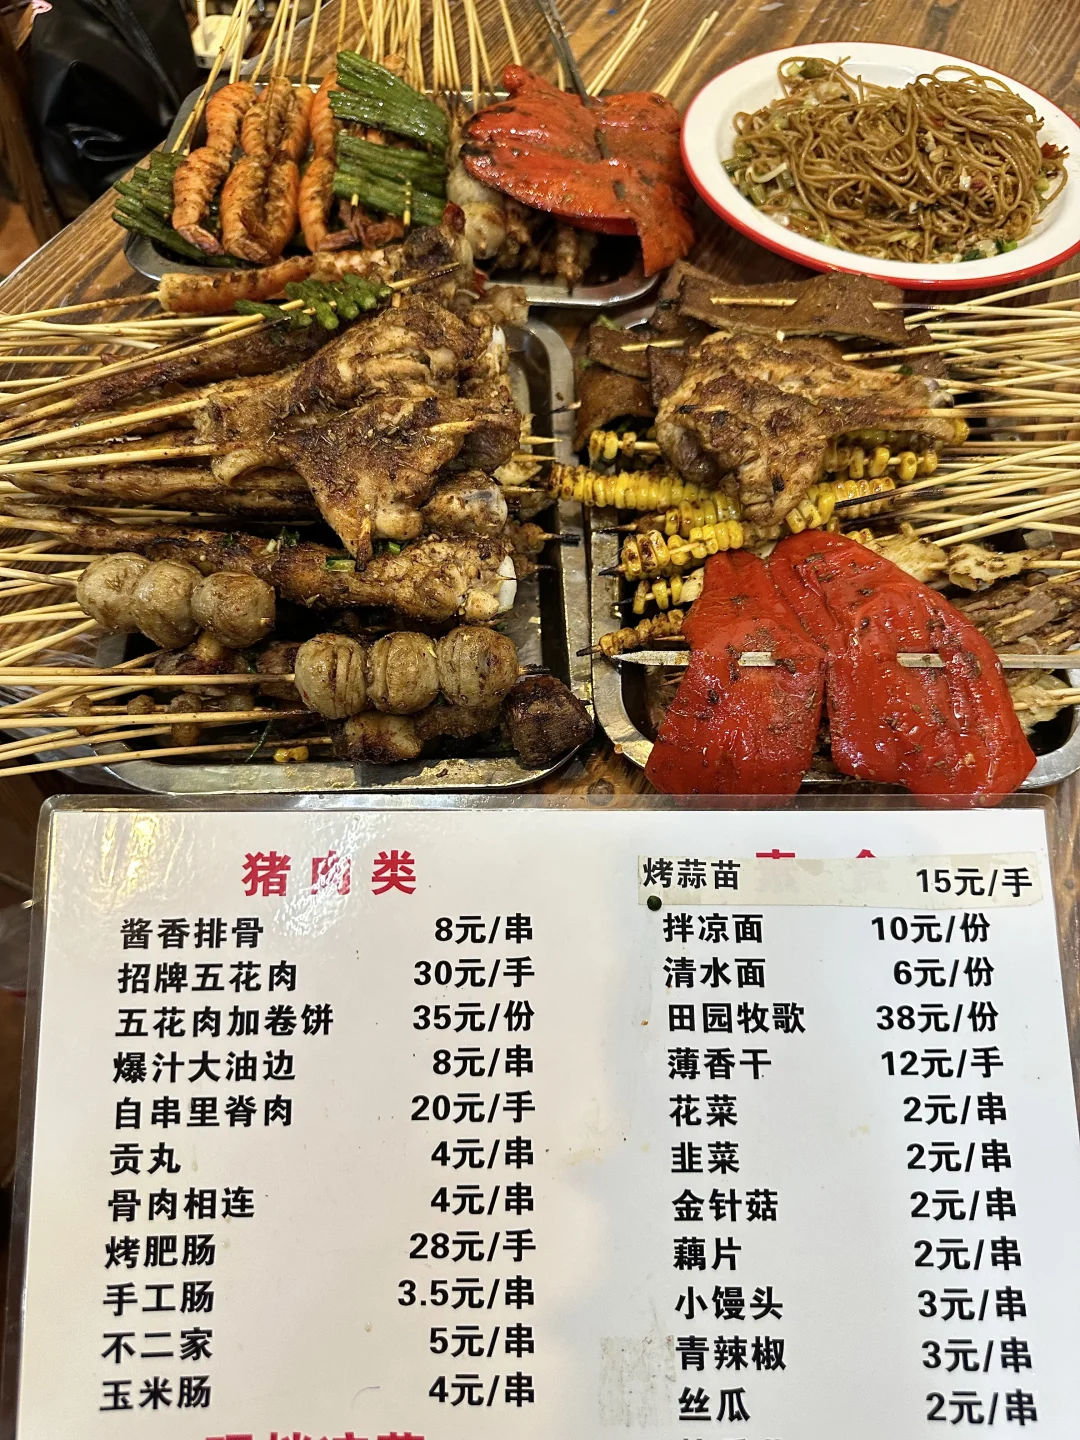 猪肉类
酱香排骨 8元/串
招牌五花肉 30元/手
五花肉加卷饼 35元/份
爆汁大油边 8元/串
自串里脊肉 20元/手
贡丸 4元/串
骨肉相连 4元/串
烤肥肠 28元/手
手工肠 3.5元/串
不二家 5元/串
玉米肠 4元/串
烤蒜苗 15元/手
拌凉面 10元/份
清水面 6元/份
田园牧歌 38元/份
薄香干 12元/手
花菜 2元/串
韭菜 2元/串
金针菇 2元/串
藕片 2元/串
小馒头 3元/串
青辣椒 3元/串
丝瓜 2元/串